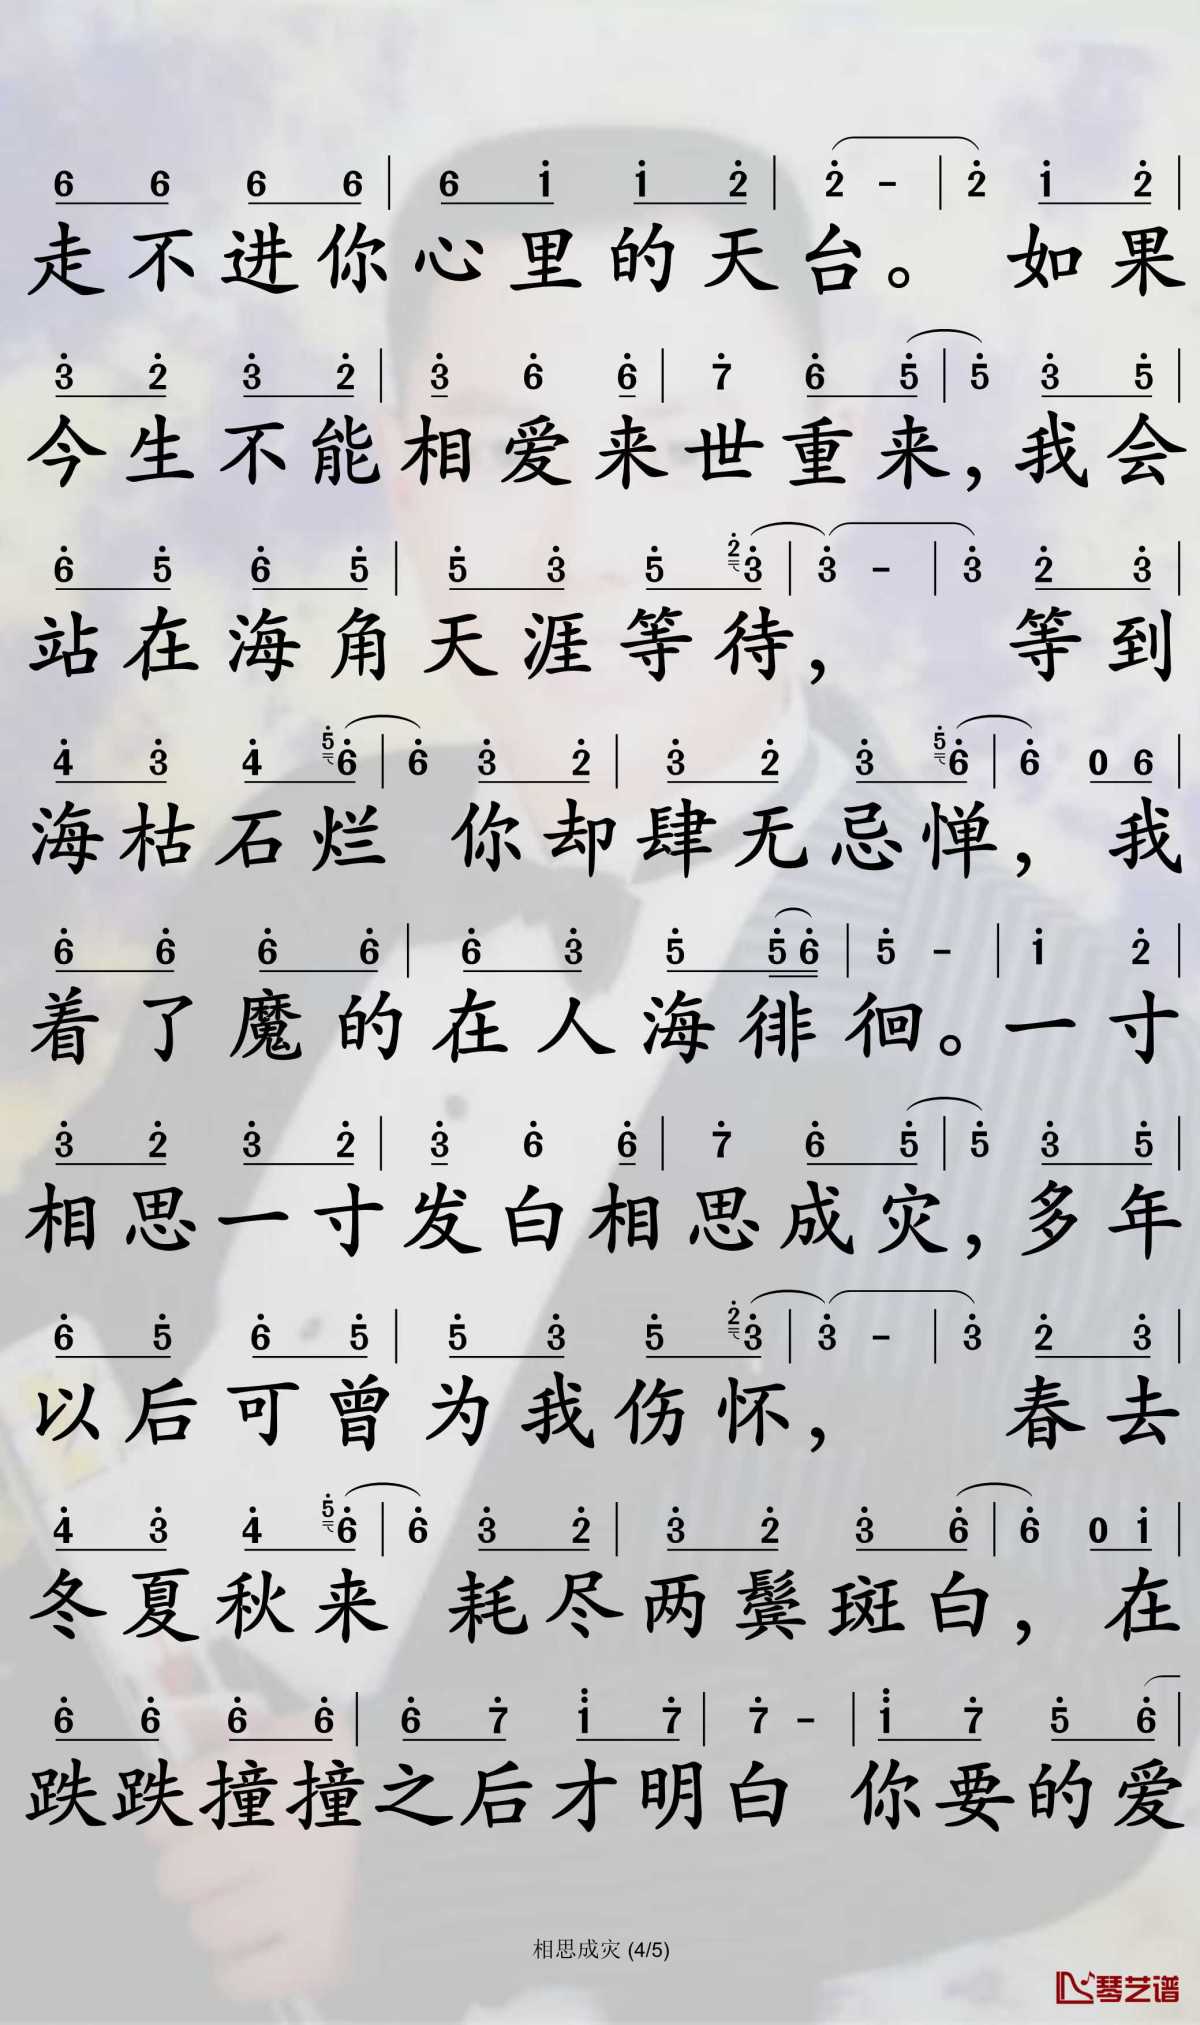 6 6 6 6 | 6 1 1 2 | 2 - | 2 1 2 |
走不进你心里的天台。 如果
3 2 3 2 | 3 6 6 | 7 6 5 | 5 3 5 |
今生不能相爱来世重来，我会
6 5 6 5 | 5 3 5 2 3 | 3 - | 3 2 3 |
站在海角天涯等待， 等到
4 3 4 5 6 | 6 3 2 | 3 2 3 5 6 | 6 0 6 |
海枯石烂 你却肆无忌惮，我
6 6 6 6 | 6 3 5 5 6 | 5 - | 1 2 |
着了魔的在人海徘徊。一寸
3 2 3 2 | 3 6 6 | 7 6 5 | 5 3 5 |
相思一寸发白相思成灾，多年
6 5 6 5 | 5 3 5 2 3 | 3 - | 3 2 3 |
以后可曾为我伤怀， 春去
4 3 4 5 6 | 6 3 2 | 3 2 3 6 | 6 0 1 |
冬夏秋来 耗尽两鬓斑白，在
6 6 6 6 | 6 7 1 7 | 7 - | 1 7 5 6 |
跌跌撞撞之后才明白 你要的爱
相思成灾 (4/5)
琴艺谱